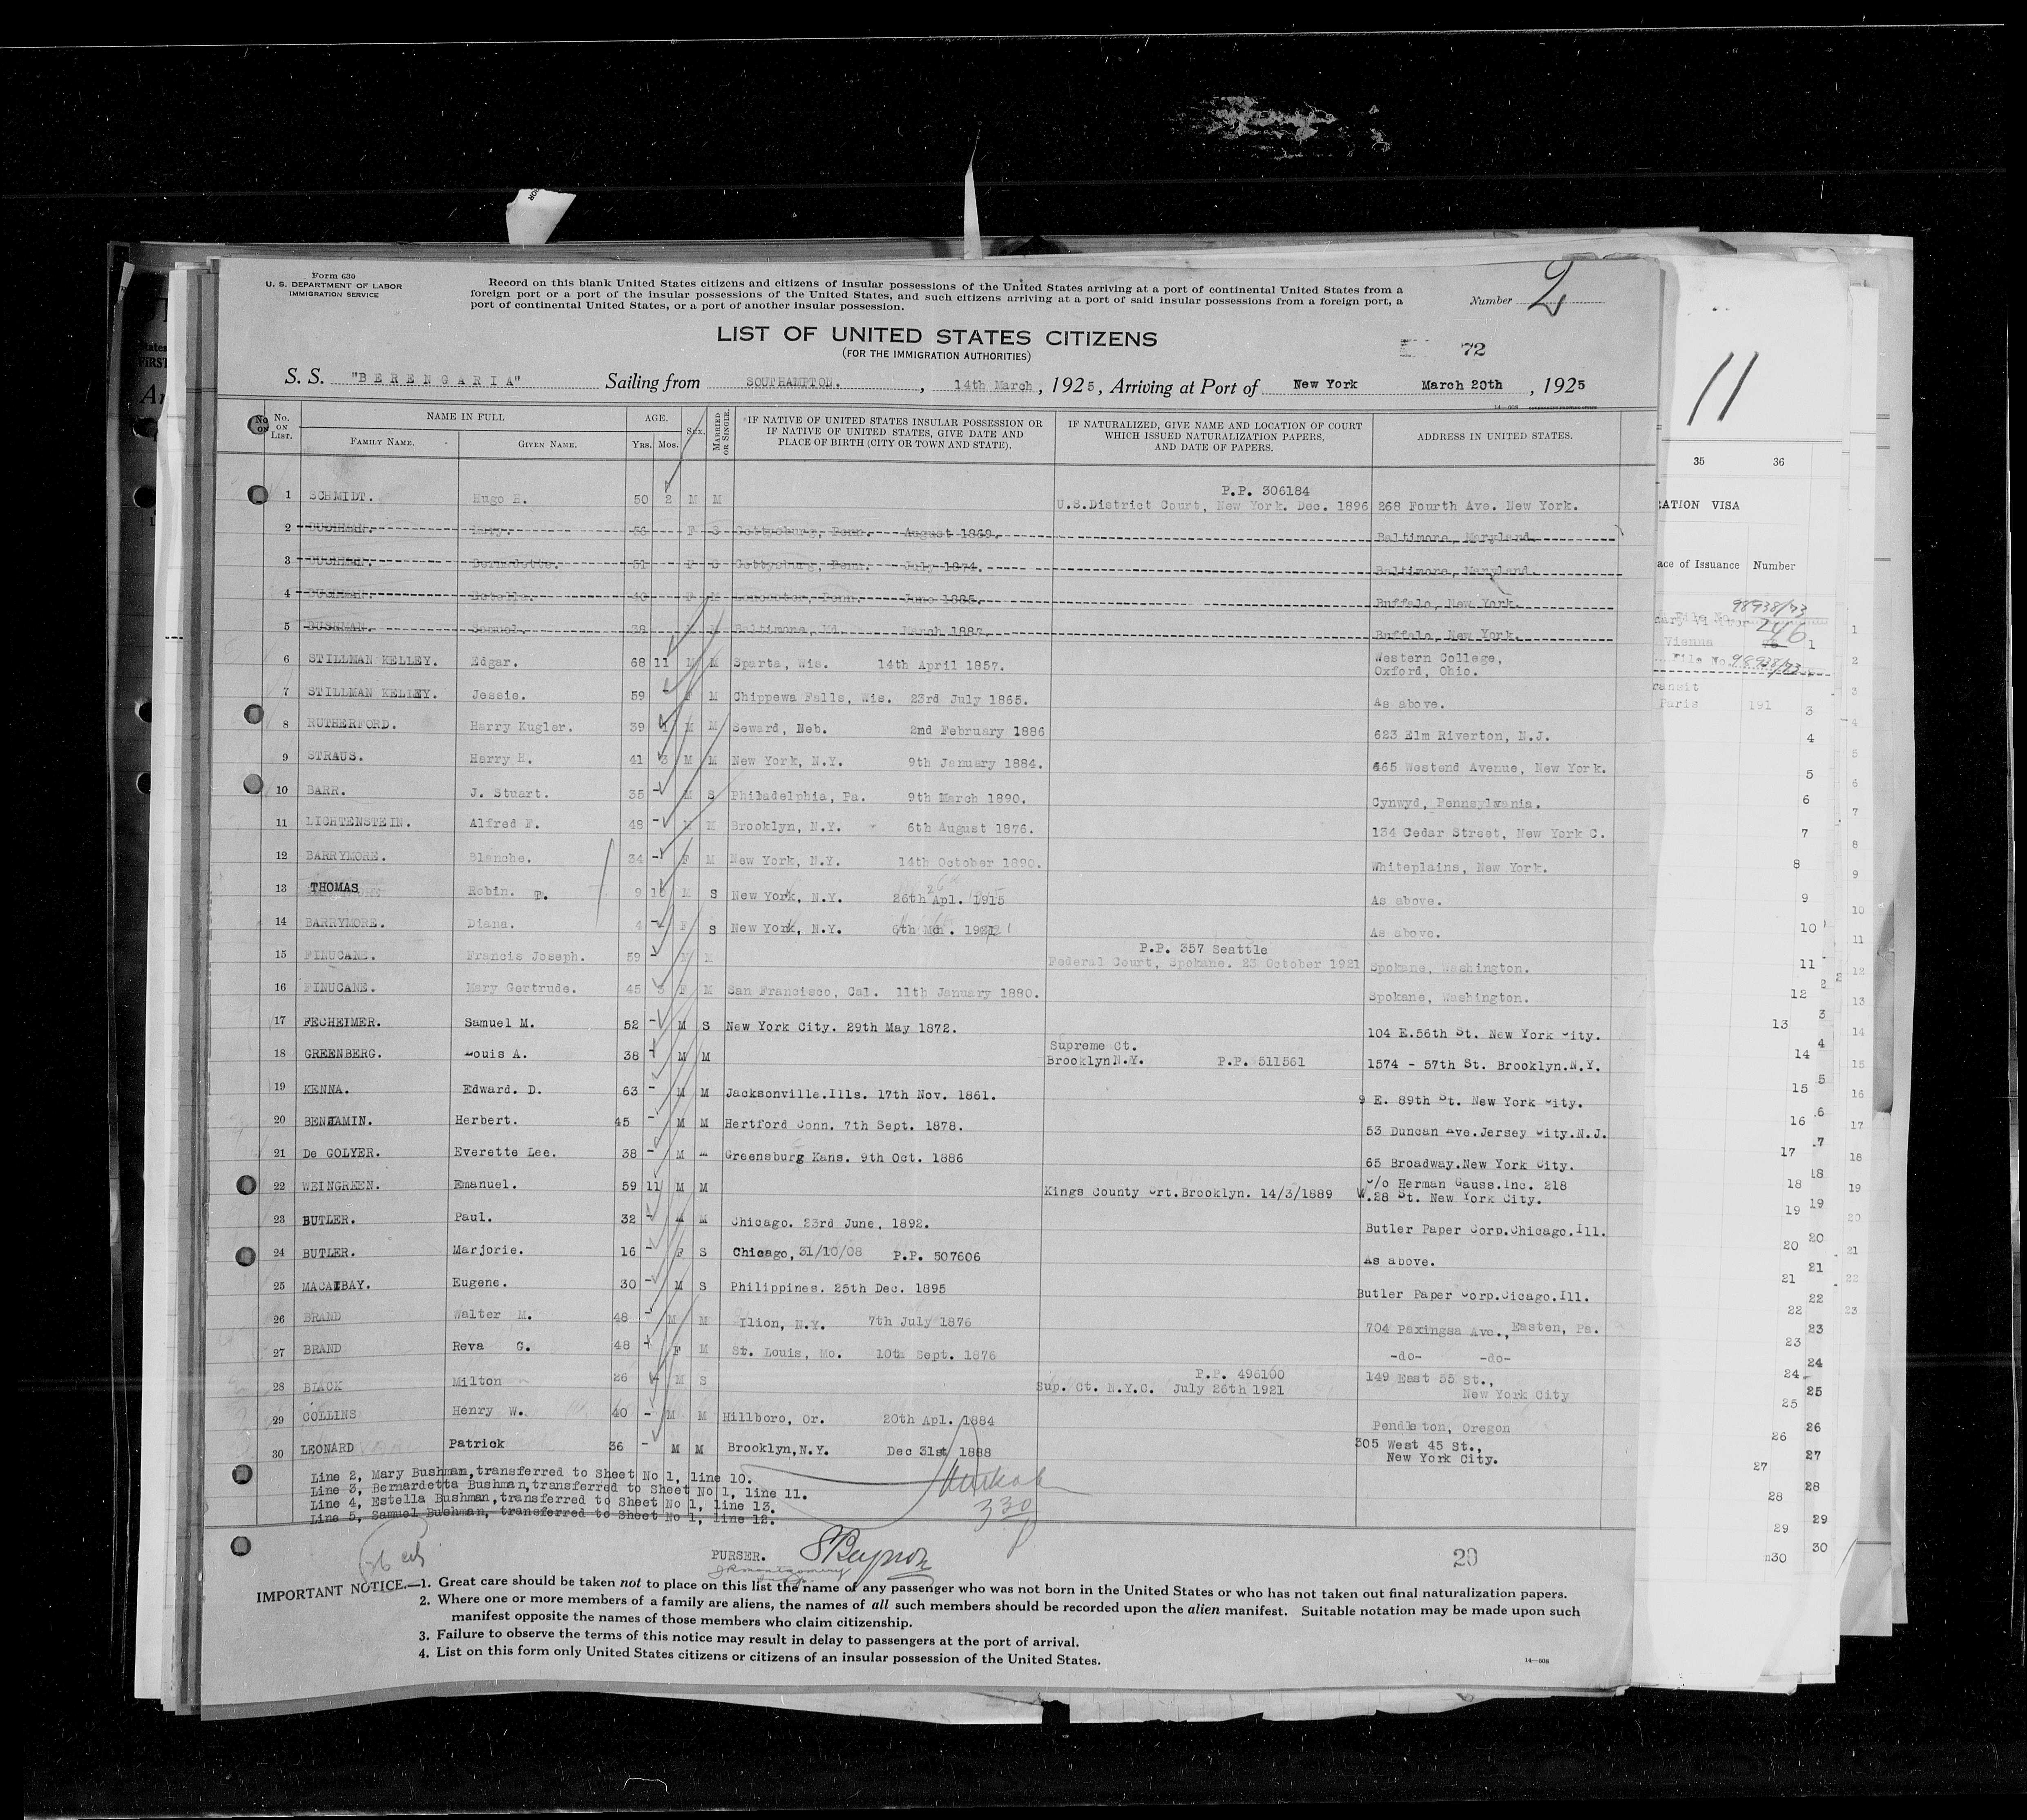 Form 630
U. S. DEPARTMENT OF LABOR
IMMIGRATION SERVICE
Record on this blank United States citizens and citizens of insular possessions of the United States arriving at a port of continental United States from a
foreign port or a port of the insular possessions of the United States, and such citizens arriving at a port of said insular possessions from a foreign port, a
port of continental United States, or a port of another insular possession.
Number 2
LIST OF UNITED STATES CITIZENS
(FOR THE IMMIGRATION AUTHORITIES)
72
S. S. "BERENGARIA" Sailing from SOUTHAMPTON. , 14th March , 1925, Arriving at Port of New York March 20th , 1925
No. ON LIST. NAME IN FULL FAMILY NAME. GIVEN NAME. AGE. Yrs. Mos. SEX. MARRIED OR SINGLE. IF NATIVE OF UNITED STATES INSULAR POSSESSION OR IF NATIVE OF UNITED STATES, GIVE DATE AND PLACE OF BIRTH (CITY OR TOWN AND STATE). IF NATURALIZED, GIVE NAME AND LOCATION OF COURT WHICH ISSUED NATURALIZATION PAPERS, AND DATE OF PAPERS. ADDRESS IN UNITED STATES.
P.P. 306184
1 SCHMIDT. Hugo H. 50 2 M M U.S.District Court, New York. Dec. 1896 268 Fourth Ave. New York.
2 BUSHMAN. Mary. 56 F S Gettysburg, Penn. August 1868. Baltimore, Maryland.
3 BUSHMAN. Bernadette. 51 F S Gettysburg, Penn. July 1874. Baltimore, Maryland.
4 BUSHMAN. Estella. 40 F M Penn. June 1885. Buffalo, New York.
5 BUSHMAN. Samuel. 38 M M Baltimore, Md. March 1887. Buffalo, New York.
6 STILLMAN KELLEY. Edgar. 68 11 M M Sparta, Wis. 14th April 1857. Western College, Oxford, Ohio.
7 STILLMAN KELLEY. Jessie. 59 - F M Chippewa Falls, Wis. 23rd July 1865. As above.
8 RUTHERFORD. Harry Kugler. 39 1 M M Seward, Neb. 2nd February 1886 623 Elm Riverton, N.J.
9 STRAUS. Harry H. 41 3 M M New York, N.Y. 9th January 1884. 465 Westend Avenue, New York.
10 BARR. J. Stuart. 35 - M S Philadelphia, Pa. 9th March 1890. Cynwyd, Pennsylvania.
11 LICHTENSTEIN. Alfred F. 48 - M M Brooklyn, N.Y. 6th August 1876. 134 Cedar Street, New York C.
12 BARRYMORE. Blanche. 34 - F M New York, N.Y. 14th October 1890. Whiteplains, New York.
13 THOMAS Robin. T. 9 10 M S New York, N.Y. 26th Apl. 1915 As above.
14 BARRYMORE. Diana. 4 - F S New York, N.Y. 6th Mch. 1921 As above.
P.P. 357 Seattle
15 FINUCANE. Francis Joseph. 59 - M M Federal Court, Spokane. 23 October 1921 Spokane, Washington.
16 FINUCANE. Mary Gertrude. 45 3 F M San Francisco, Cal. 11th January 1880. Spokane, Washington.
17 FECHEIMER. Samuel M. 52 - M S New York City. 29th May 1872. 104 E.56th St. New York City.
18 GREENBERG. Louis A. 38 - M M Supreme Ct. Brooklyn N.Y. P.P. 511561 1574 - 57th St. Brooklyn.N.Y.
19 KENNA. Edward. D. 63 - M M Jacksonville.Ills. 17th Nov. 1861. 9 E. 89th St. New York City.
20 BENJAMIN. Herbert. 45 - M M Hertford Conn. 7th Sept. 1878. 53 Duncan Ave.Jersey City.N.J.
21 De GOLYER. Everette Lee. 38 - M M Greensburg Kans. 9th Oct. 1886 65 Broadway.New York City.
22 WEINGREEN. Emanuel. 59 11 M M Kings County Crt.Brooklyn. 14/3/1889 C/o Herman Gauss.Inc. 218 W.28 St. New York City.
23 BUTLER. Paul. 32 - M M Chicago. 23rd June, 1892. Butler Paper Corp.Chicago.Ill.
24 BUTLER. Marjorie. 16 - F S Chicago, 31/10/08 P.P. 507606 As above.
25 MACAIBAY. Eugene. 30 - M S Philippines. 25th Dec. 1895 Butler Paper Corp.Cicago.Ill.
26 BRAND Walter M. 48 - M M Ilion, N.Y. 7th July 1876 704 Paxingsa Ave., Easten, Pa.
27 BRAND Reva G. 48 - F M St. Louis, Mo. 10th Sept. 1876 -do- -do-
P.P. 496100
28 BLACK Milton 26 - M S Sup. Ct. N.Y.C. July 26th 1921 149 East 55 St., New York City
29 COLLINS Henry W. 40 - M M Hillboro, Or. 20th Apl. 1884 Pendleton, Oregon
30 LEONARD Patrick 36 - M M Brooklyn,N.Y. Dec 31st 1888 305 West 45 St., New York City.
Line 2, Mary Bushman,transferred to Sheet No 1, line 10.
Line 3, Bernardetta Bushman,transferred to Sheet No 1, line 11.
Line 4, Estella Bushman,transferred to Sheet No 1, line 13.
Line 5, Samuel Bushman, transferred to Sheet No 1, line 12.
330
PURSER.
20
IMPORTANT NOTICE.—1. Great care should be taken not to place on this list the name of any passenger who was not born in the United States or who has not taken out final naturalization papers.
2. Where one or more members of a family are aliens, the names of all such members should be recorded upon the alien manifest. Suitable notation may be made upon such
manifest opposite the names of those members who claim citizenship.
3. Failure to observe the terms of this notice may result in delay to passengers at the port of arrival.
4. List on this form only United States citizens or citizens of an insular possession of the United States.
14—808
11
35 36
RATION VISA
ace of Issuance Number
98938/73
246
Vienna
File No. 98938/73
ransit
Paris 191